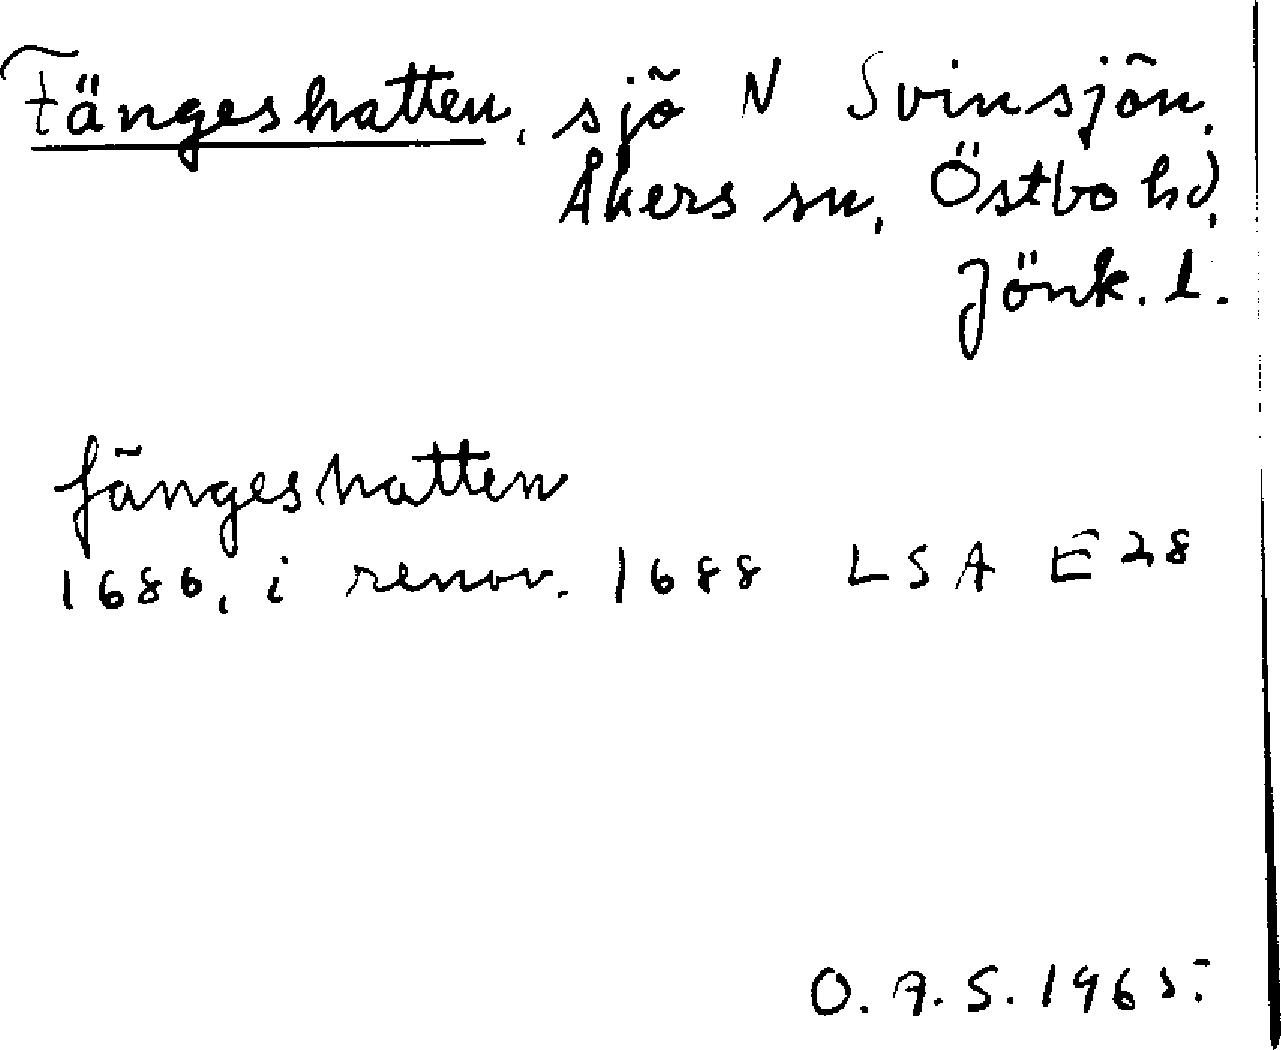 Fängeshatten, sjö N Svinsjön,
Åkers sn, Östbo hd,
Jönk. l.
fängeshatten
1686, i renov. 1688 LSA E28
O.A.S. 1965.